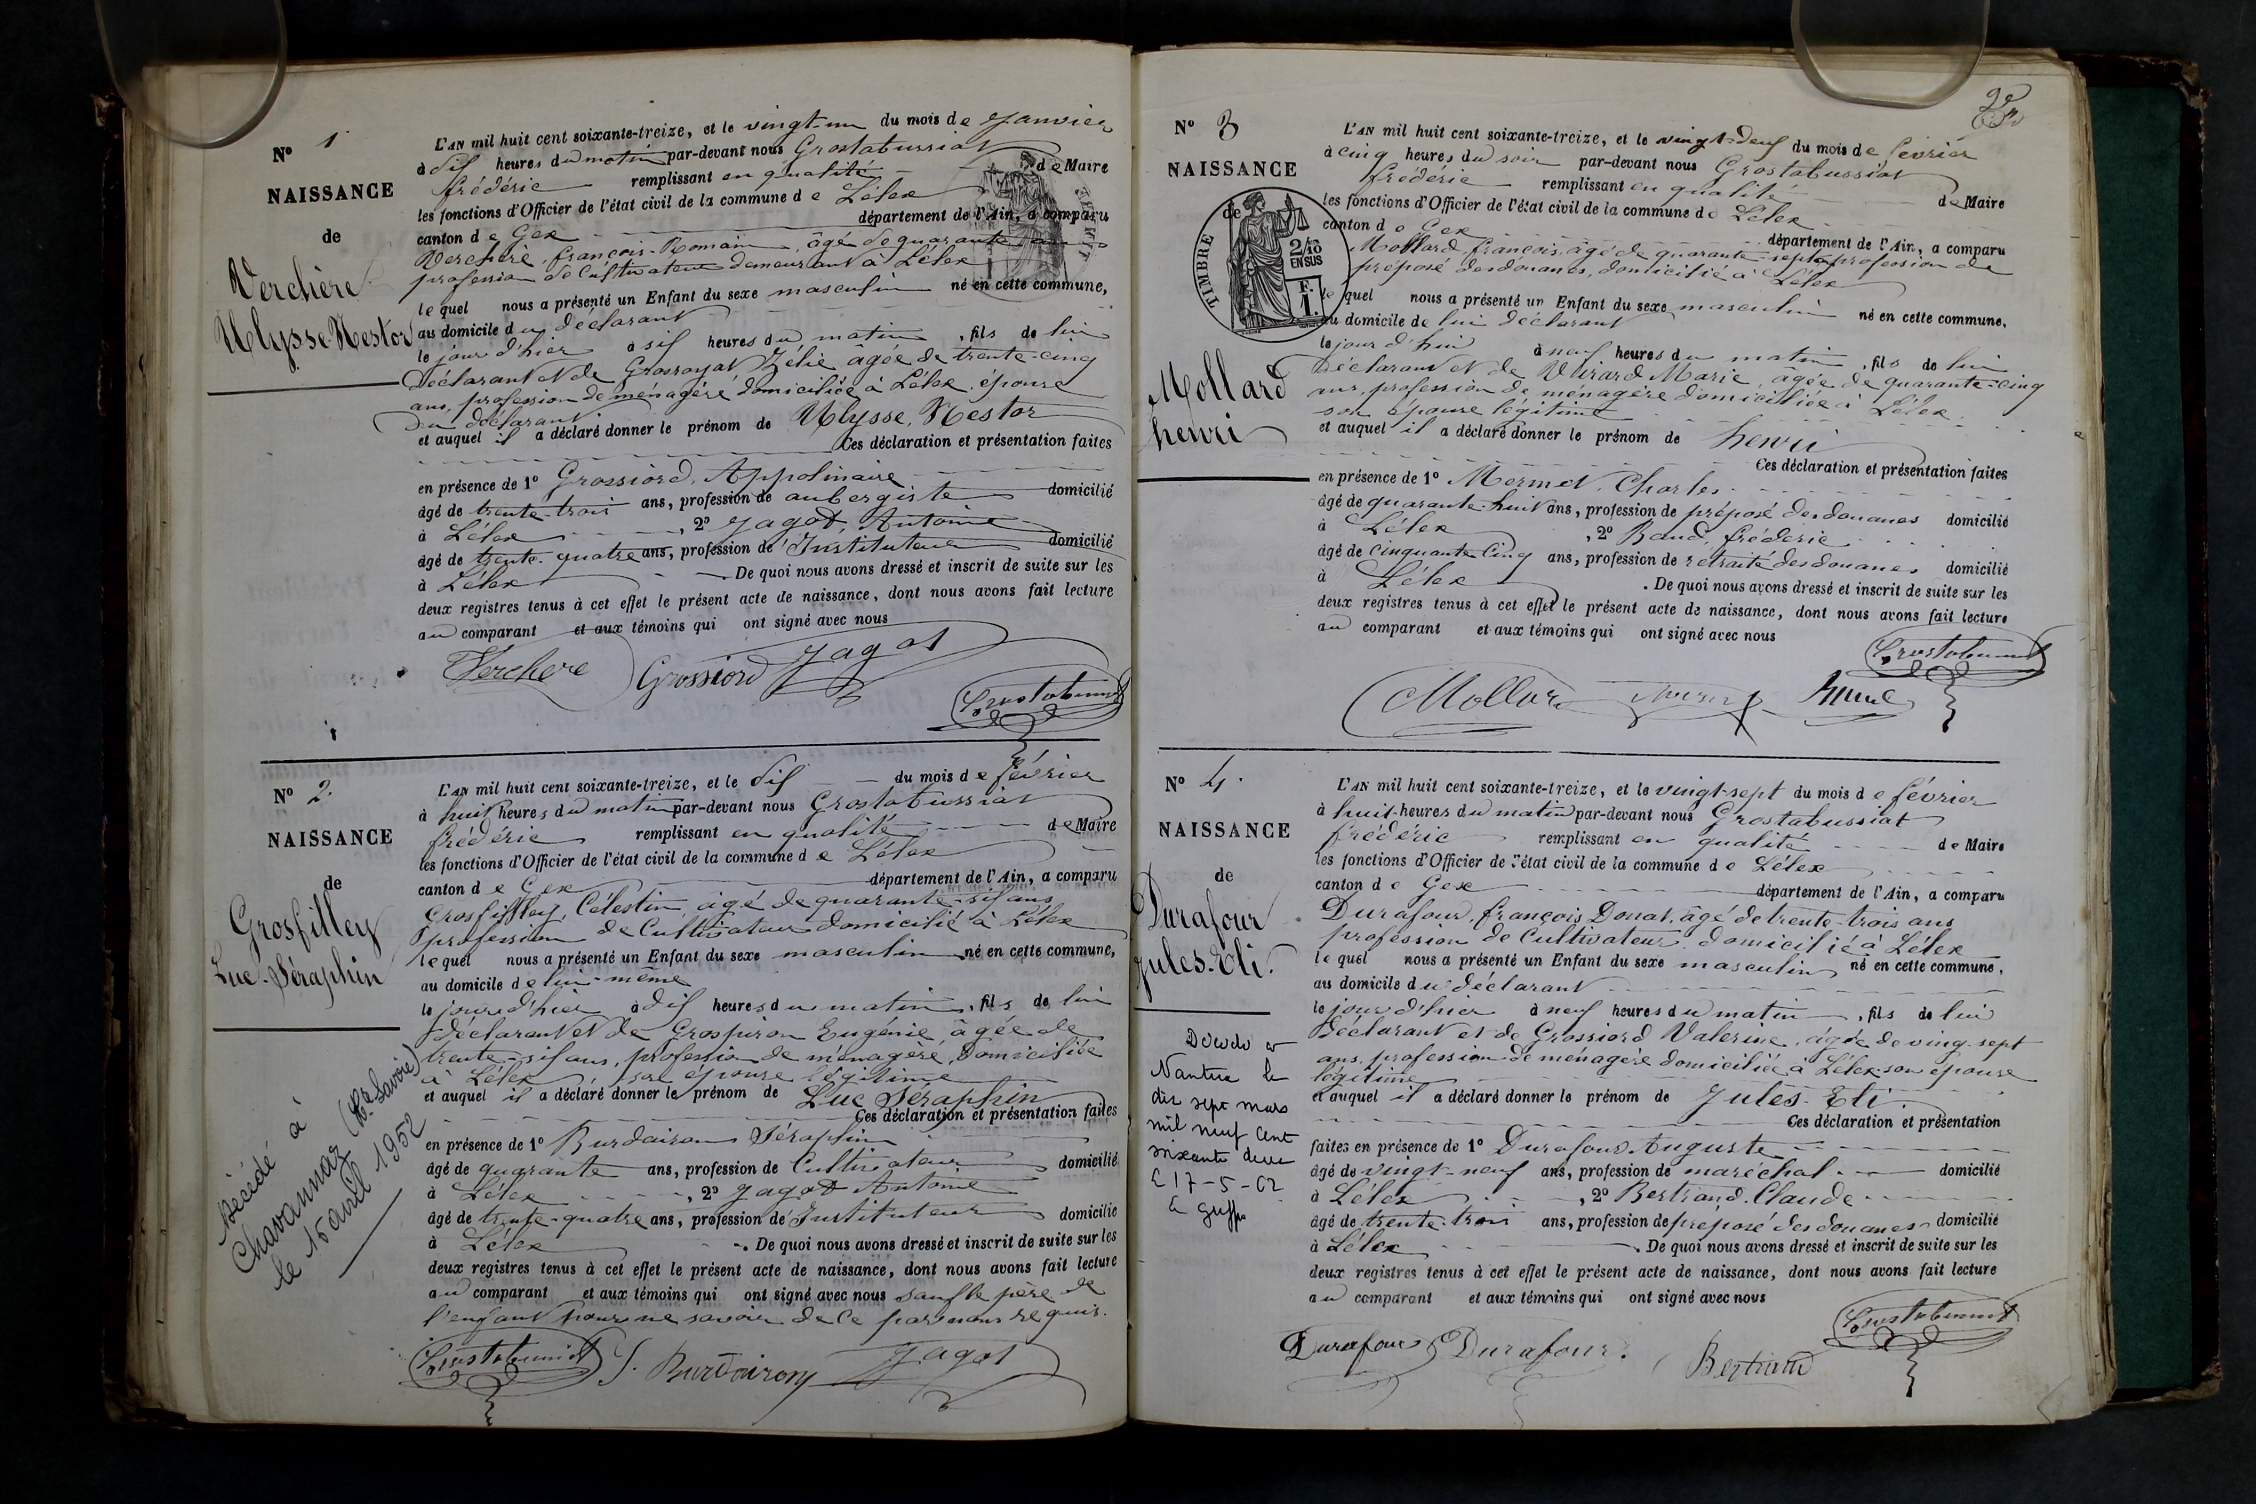 N° 1
NAISSANCE
de
Verchère
Ulysse-Nestor
L'AN mil huit cent soixante-treize, et le vingt-un du mois de Janvier
à dix heures du matin par-devant nous Grostabussiat
frédéric remplissant en qualité de Maire
les fonctions d'Officier de l'état civil de la commune de Lélex
canton de Gex département de l'Ain, a comparu
Verchère, françois-Romain, âgé de quarante ans
profession de Cultivateur demeurant à Lélex
lequel nous a présenté un Enfant du sexe masculin né en cette commune,
au domicile du déclarant
le jour d'hier à six heures du matin, fils de lui
déclarant et de Grosroyat Zélie agée de trente-cinq
ans, profession de ménagére domiciliée à Lélex, épouse
du déclarant
et auquel il a déclaré donner le prénom de Ulysse, Nestor
Ces déclaration et présentation faites
en présence de 1° Grossiord, Appolinaire
âgé de trente-trois ans, profession de aubergiste domicilié
à Lélex, 2° Jagot, Antoine
âgé de trente-quatre ans, profession de Instituteur domicilié
à Lélex. De quoi nous avons dressé et inscrit de suite sur les
deux registres tenus à cet effet le présent acte de naissance, dont nous avons fait lecture
au comparant et aux témoins qui ont signé avec nous
Verchere Grossiord Jagot
Grostabussiat
N° 2.
NAISSANCE
de
Grosfilley
Luc-Séraphin
Décédé à
Chavannaz (Hte Savoie)
le 15 avril 1952
L'AN mil huit cent soixante-treize, et le dix du mois de février
à huit heures du matin par-devant nous Grostabussiat
frédéric remplissant en qualité de Maire
les fonctions d'Officier de l'état civil de la commune de Lélex
canton de Gex département de l'Ain, a comparu
Grosfilley, Célestin, âgé de quarante-six ans
profession de Cultivateur domicilié à Lélex
lequel nous a présenté un Enfant du sexe masculin né en cette commune,
au domicile de lui-même
le jour d'hier à dix heures du matin, fils de lui
déclarant et de Grospiron Eugénie âgée de
trente-six ans, profession de ménagère, domiciliée
à Lélex son épouse légitime
et auquel il a déclaré donner le prénom de Luc Séraphin
Ces déclaration et présentation faites
en présence de 1° Burdairon Séraphin
âgé de quarante ans, profession de Cultivateur domicilié
à Lélex, 2° Jagot Antoine
âgé de trente-quatre ans, profession de Instituteur domicilié
à Lélex. De quoi nous avons dressé et inscrit de suite sur les
deux registres tenus à cet effet le présent acte de naissance, dont nous avons fait lecture
au comparant et aux témoins qui ont signé avec nous sauf le père de
l'enfant pour ne savoir de ce par nous requis.
Grostabussiat S. Burdairon Jagot
2e
N° 3
NAISSANCE
de
TIMBRE
2/10
EN SUS
F.
1.
Mollard
henri
L'AN mil huit cent soixante-treize, et le vingt-deux du mois de février
à cinq heures du soir par-devant nous Grostabussiat
frédéric remplissant en qualité de Maire
les fonctions d'Officier de l'état civil de la commune de Lélex
canton de Gex département de l'Ain, a comparu
Mollard, françois, âgé de quarante-sept, profession de
préposé des douanes, domicilié à Lélex
lequel nous a présenté un Enfant du sexe masculin né en cette commune,
au domicile de lui déclarant
le jour d'hui à neuf heures du matin, fils de lui
déclarant et de Vuirard Marie, âgée de quarante-cinq
ans, profession de ménagère domiciliée à Lélex
son épouse légitime
et auquel il a déclaré donner le prénom de henri
Ces déclaration et présentation faites
en présence de 1° Mermet, Charles
âgé de quarante-huit ans, profession de préposé des douanes domicilié
à Lélex, 2° Baud, frédéric
âgé de cinquante-Cinq ans, profession de retraité des douanes domicilié
à Lélex. De quoi nous avons dressé et inscrit de suite sur les
deux registres tenus à cet effet le présent acte de naissance, dont nous avons fait lecture
au comparant et aux témoins qui ont signé avec nous
Grostabussiat
Mollard
N° 4.
NAISSANCE
de
Durafour
Jules-Eli.
Décédé à
Nantua le
dix sept mars
mil neuf cent
soixante deux
L 17-5-62
L greffe
L'AN mil huit cent soixante-treize, et le vingt-sept du mois de février
à huit heures du matin par-devant nous Grostabussiat
frédéric remplissant en qualité de Maire
les fonctions d'Officier de l'état civil de la commune de Lélex
canton de Gex département de l'Ain, a comparu
Durafour, françois Donat, âgé de trente-trois ans
profession de Cultivateur domicilié à Lélex
lequel nous a présenté un Enfant du sexe masculin né en cette commune,
au domicile du déclarant
le jour d'hier à neuf heures du matin, fils de lui
déclarant et de Grossiord Valerine, âgée de ving-sept
ans, profession de ménagère domiciliée à Lélex son épouse
légitime
et auquel il a déclaré donner le prénom de Jules-Eli
Ces déclaration et présentation
faites en présence de 1° Durafour Auguste
âgé de vingt-neuf ans, profession de maréchal domicilié
à Lélex, 2° Bertrand Claude
âgé de trente-trois ans, profession de préposé des douanes domicilié
à Lélex. De quoi nous avons dressé et inscrit de suite sur les
deux registres tenus à cet effet le présent acte de naissance, dont nous avons fait lecture
au comparant et aux témoins qui ont signé avec nous
Grostabussiat
Durafour Durafour. Bertrand